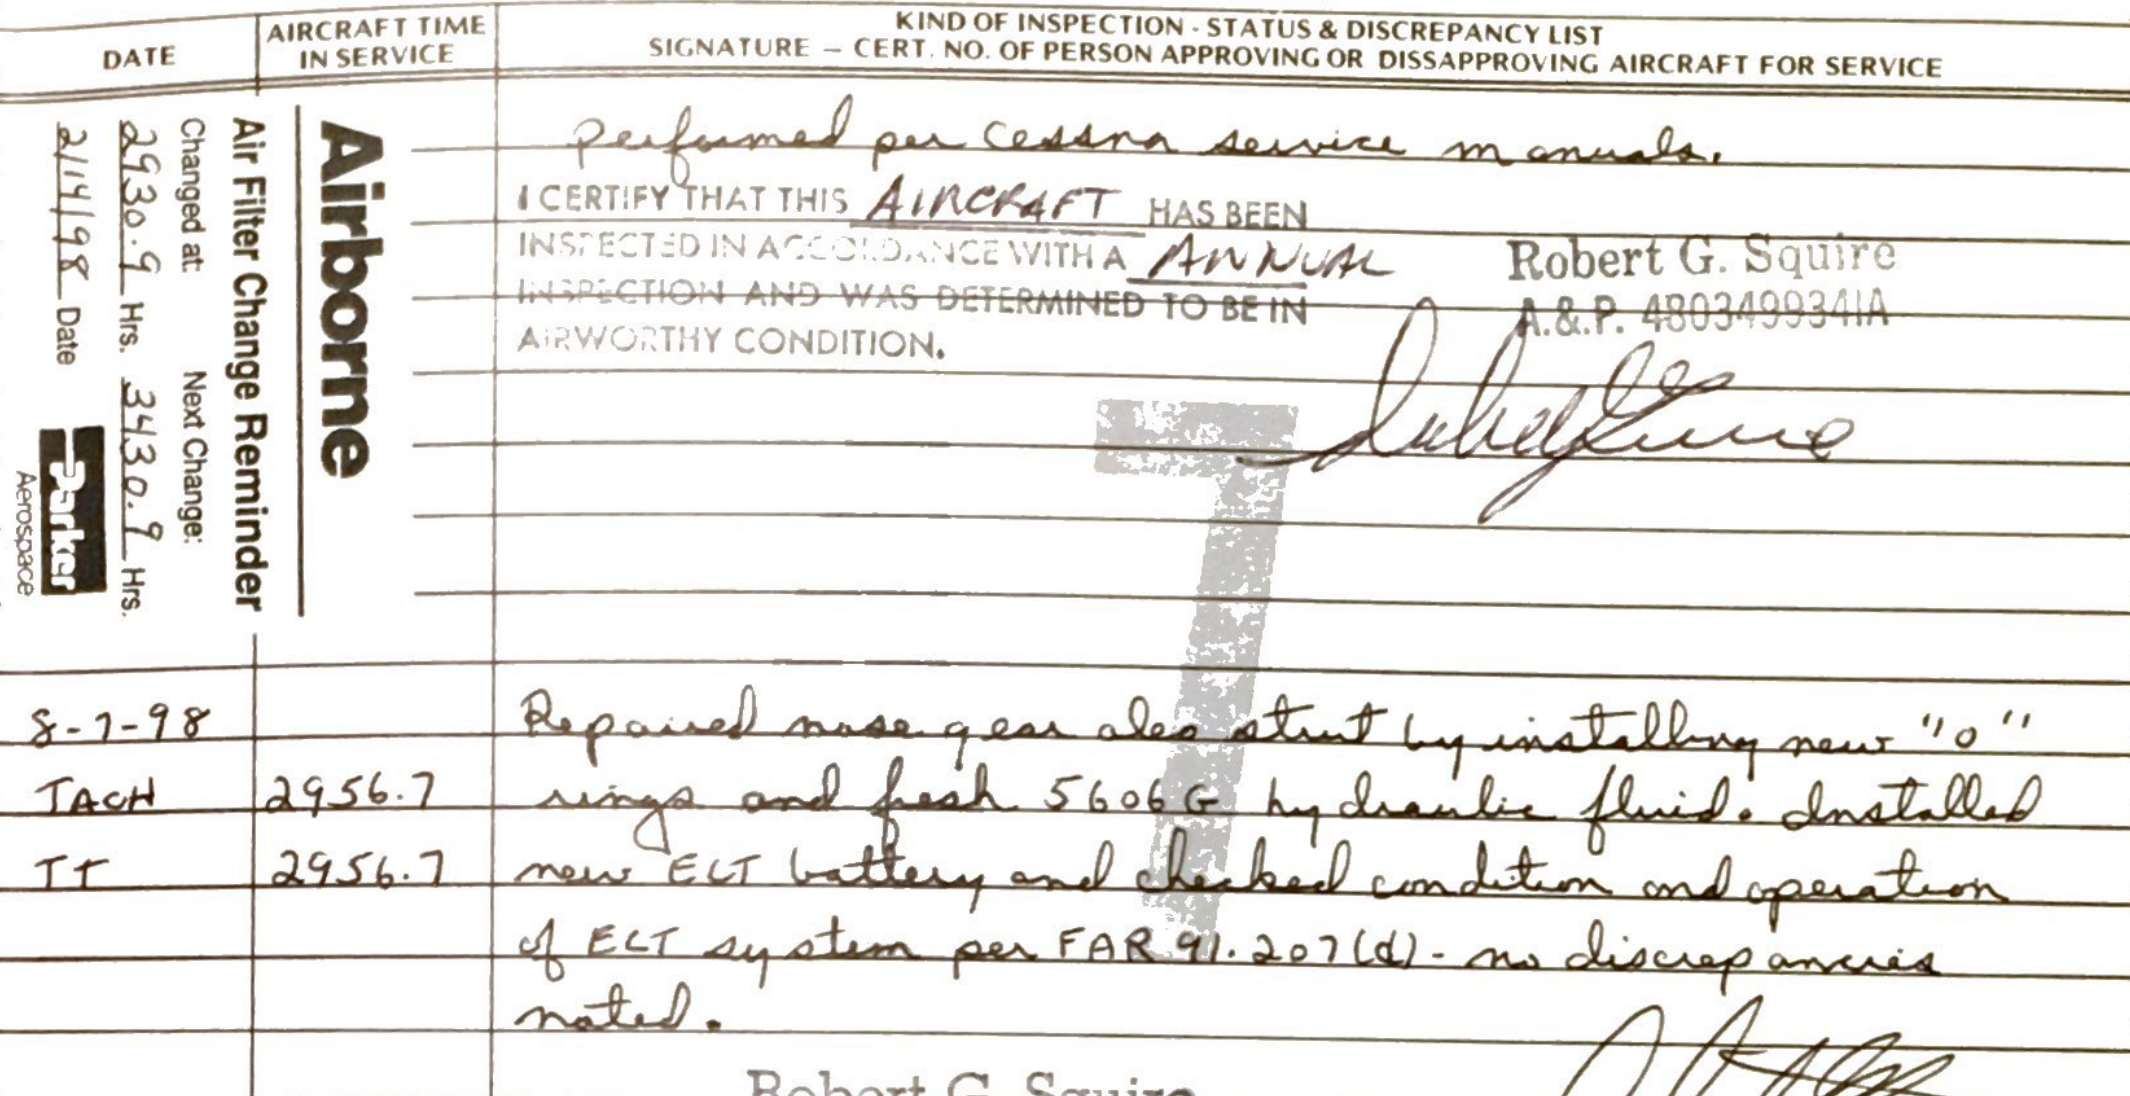 DATE
AIRCRAFT TIME
IN SERVICE
KIND OF INSPECTION - STATUS & DISCREPANCY LIST
SIGNATURE — CERT. NO. OF PERSON APPROVING OR DISSAPPROVING AIRCRAFT FOR SERVICE
Airborne
Air Filter Change Reminder
Changed at: Next Change:
2930.9 Hrs. 3430.9 Hrs.
2/14/98 Date
Parker
Aerospace
performed per Cessna service manuals.
I CERTIFY THAT THIS AIRCRAFT HAS BEEN
INSPECTED IN ACCORDANCE WITH A ANNUAL
INSPECTION AND WAS DETERMINED TO BE IN
AIRWORTHY CONDITION.
Robert G. Squire
A.&P. 480349934IA
8-7-98 Repaired nose gear oleo strut by installing new "o"
TACH 2956.7 rings and fresh 5606G hydraulic fluid. Installed
TT 2956.7 new ELT battery and checked condition and operation
of ELT system per FAR 91.207(d) - no discrepancies
noted.
Robert G. Squire